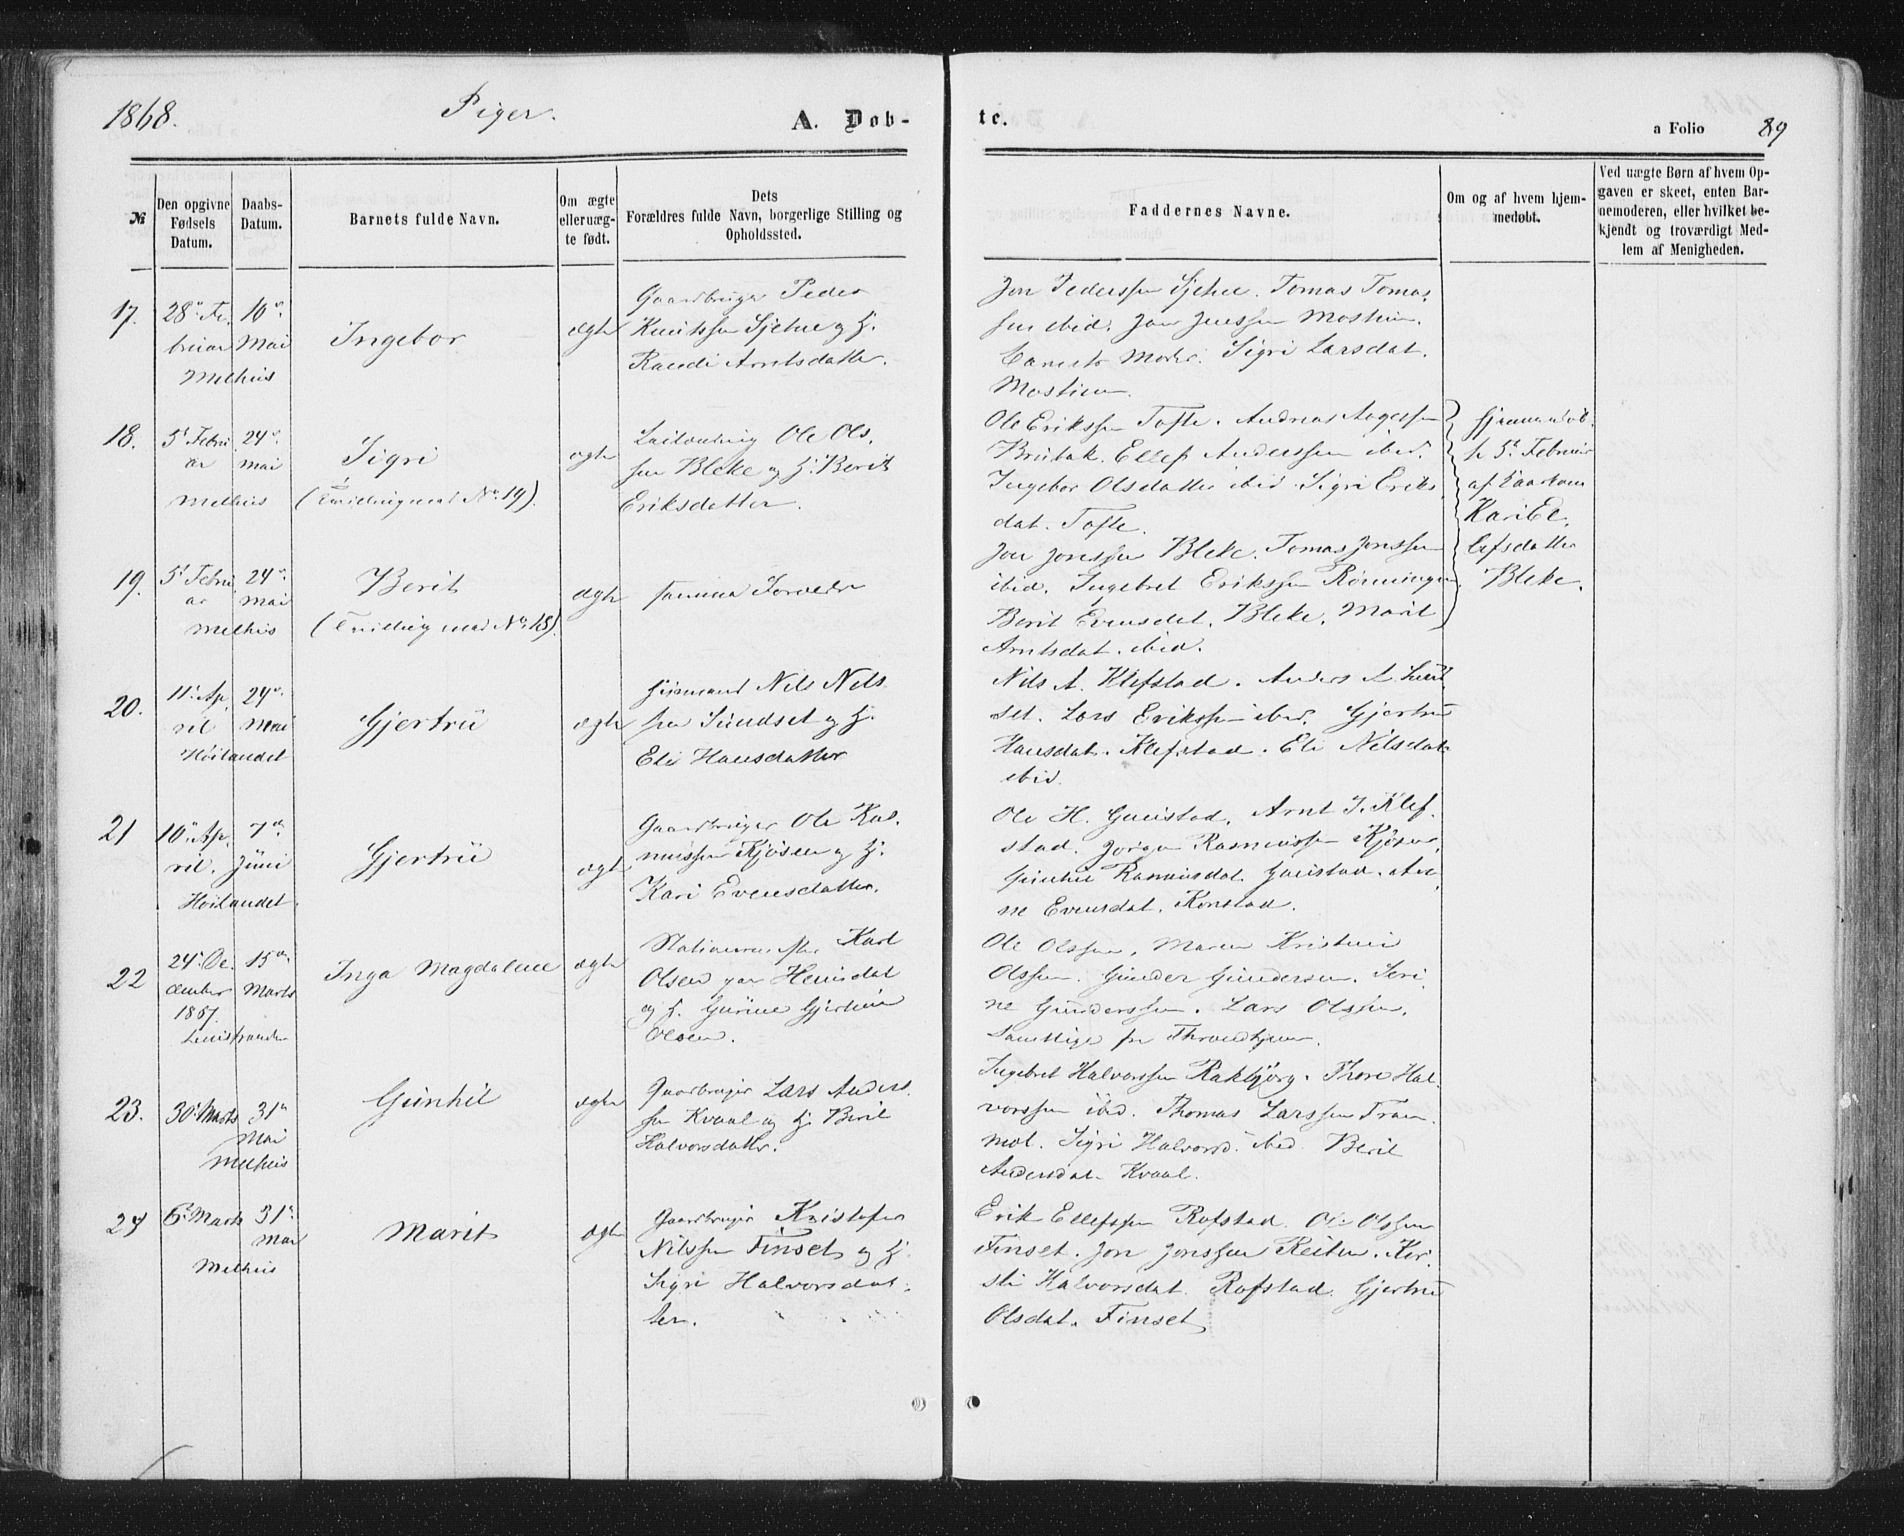 1868.
Piger.
A. Døb-
te.
a Folio 89
№
Den opgivne Fødsels Datum.
Daabs-Datum.
Barnets fulde Navn.
Om ægte eller uægte født.
Dets Forældres fulde Navn, borgerlige Stilling og Opholdssted.
Faddernes Navne.
Om og af hvem hjemmedøbt.
Ved uægte Børn af hvem Opgaven er skeet, enten Barnemoderen, eller hvilket bekjendt og troværdigt Medlem af Menigheden.
17.
28de Fe-
bruar
10de
Mai
Melhus
Ingebor
ægte
Gaardbruger Peder
Knutssen Sjetne og H.
Randi Arntsdatter.
Jon Pederssen Sjetne. Tomas Tomas-
sen ibid. Jon Jenssen
Barnets Moder. Sigri Larsdat.
18.
5te Febru
ar
24de
Mai
Melhus
Sigri
(Tvilling med No. 19).
ægte
Ole Ols-
sen Bleke og H. Berit
Eriksdatter.
Ole Erikssen Tofte. Andreas Aagessen
Ellef Anderssen ibid.
Ingebor Olsdatter ibid. Sigri Eriks
dat. Tofte.
Hjemmedøb-
t 5te Februar
af
Kari El-
lefsdatter
Bleke.
19.
5te Febru
ar
24de
Mai
Melhus
Berit
(Tvilling med No. 18).
ægte
samme Forældre
Jon Jonssen Bleke. Tomas Jonssen
ibid. Ingebret Erikssen Rønningen
Berit Evensdat. Bleke. Marit
Arntsdat. ibid.
20.
11te Ap-
ril
24de
Mai
Høilandet
Gjertru
ægte
Huusmand Nils Nils-
sen Sundset og H.
Eli Hansdatter
Nils A. Klefstad. Anders A. Sund-
set. Lars Erikssen ibid. Gjertru
Hansdat. Klefstad. Eli Nilsdat.
ibid.
21
10de Ap-
ril.
7de
Juni
Høilandet.
Gjertru
ægte
Gaardbruger Ole Ras-
mussen Kjøsen og H.
Kari Evensdatter.
Ole H. Gaustad. Arnt J. Klef-
stad. Jørgen Rasmussen Kjøsen,
Rasmusdat. Gaustad. An-
ne Evensdat. Konstad.
22
24de De-
cember
1867.
15de
Marts
Leinstranden
Inga Magdalene
ægte
Karl
Olsen paa Heimdal
og H. Gurine Gjertine
Olsen.
Ole Olssen. Maren Kristine
Olssen. Gunder Gundersen. Seri-
ne Gunderssen. Lars Olssen,
Samtlige fra Throndhjem.
23.
30te Marts
31te
Mai
Melhus
Gunhil
ægte
Gaardbruger Lars Anders-
sen Kvaal og H. Berit
Halvorsdatter.
Ingebret Halvorssen Rakbjørg. Thore Hal-
vorssen ibid. Thomas Larssen Fram-
mot. Sigri Halvorsd. ibid. Berit
Andersdat. Kvaal.
24
6te Marts
31te
Mai
Melhus
Marit
ægte
Gaardbruger Kristofer
Nilssen Finset og H.
Sigri Halvorsdat-
ter.
Erik Ellefssen Rofstad. Ole Olssen
Finset. Jon Jonssen Reiten. Ker-
sti Halvorsdat. Rofstad. Gjertru
Olsdat. Finset